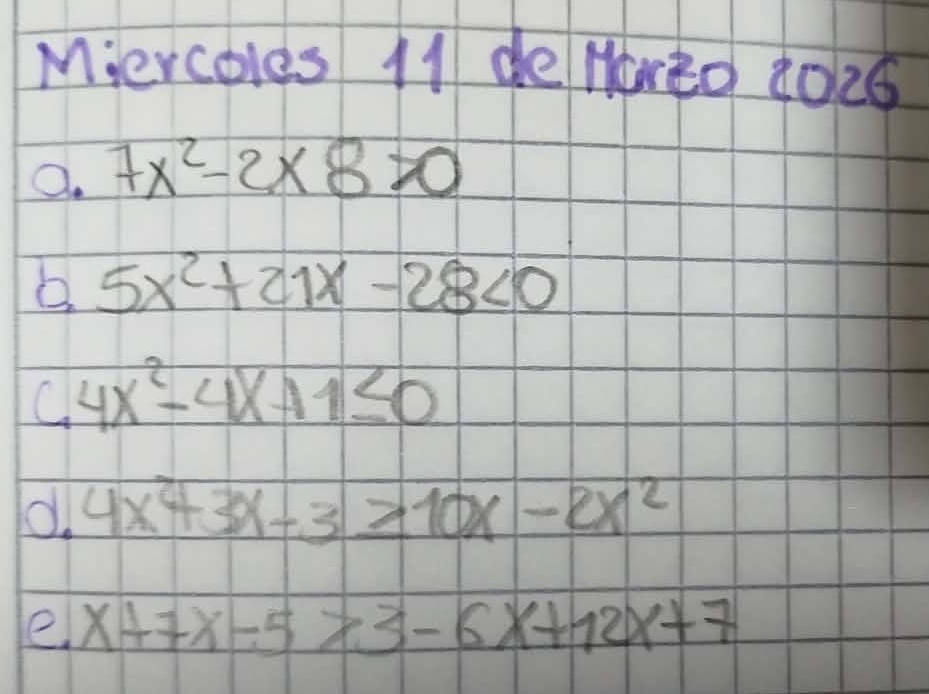 Miercoles 11 de Marzo 2026
a. 7x²-2x 8 >0
b. 5x²+21x -28<0
c. 4x²-4x+1≤0
d. 4x²+3x-3 ≥10x -2x²
e. x+7x-5 >3-6x+12x+7